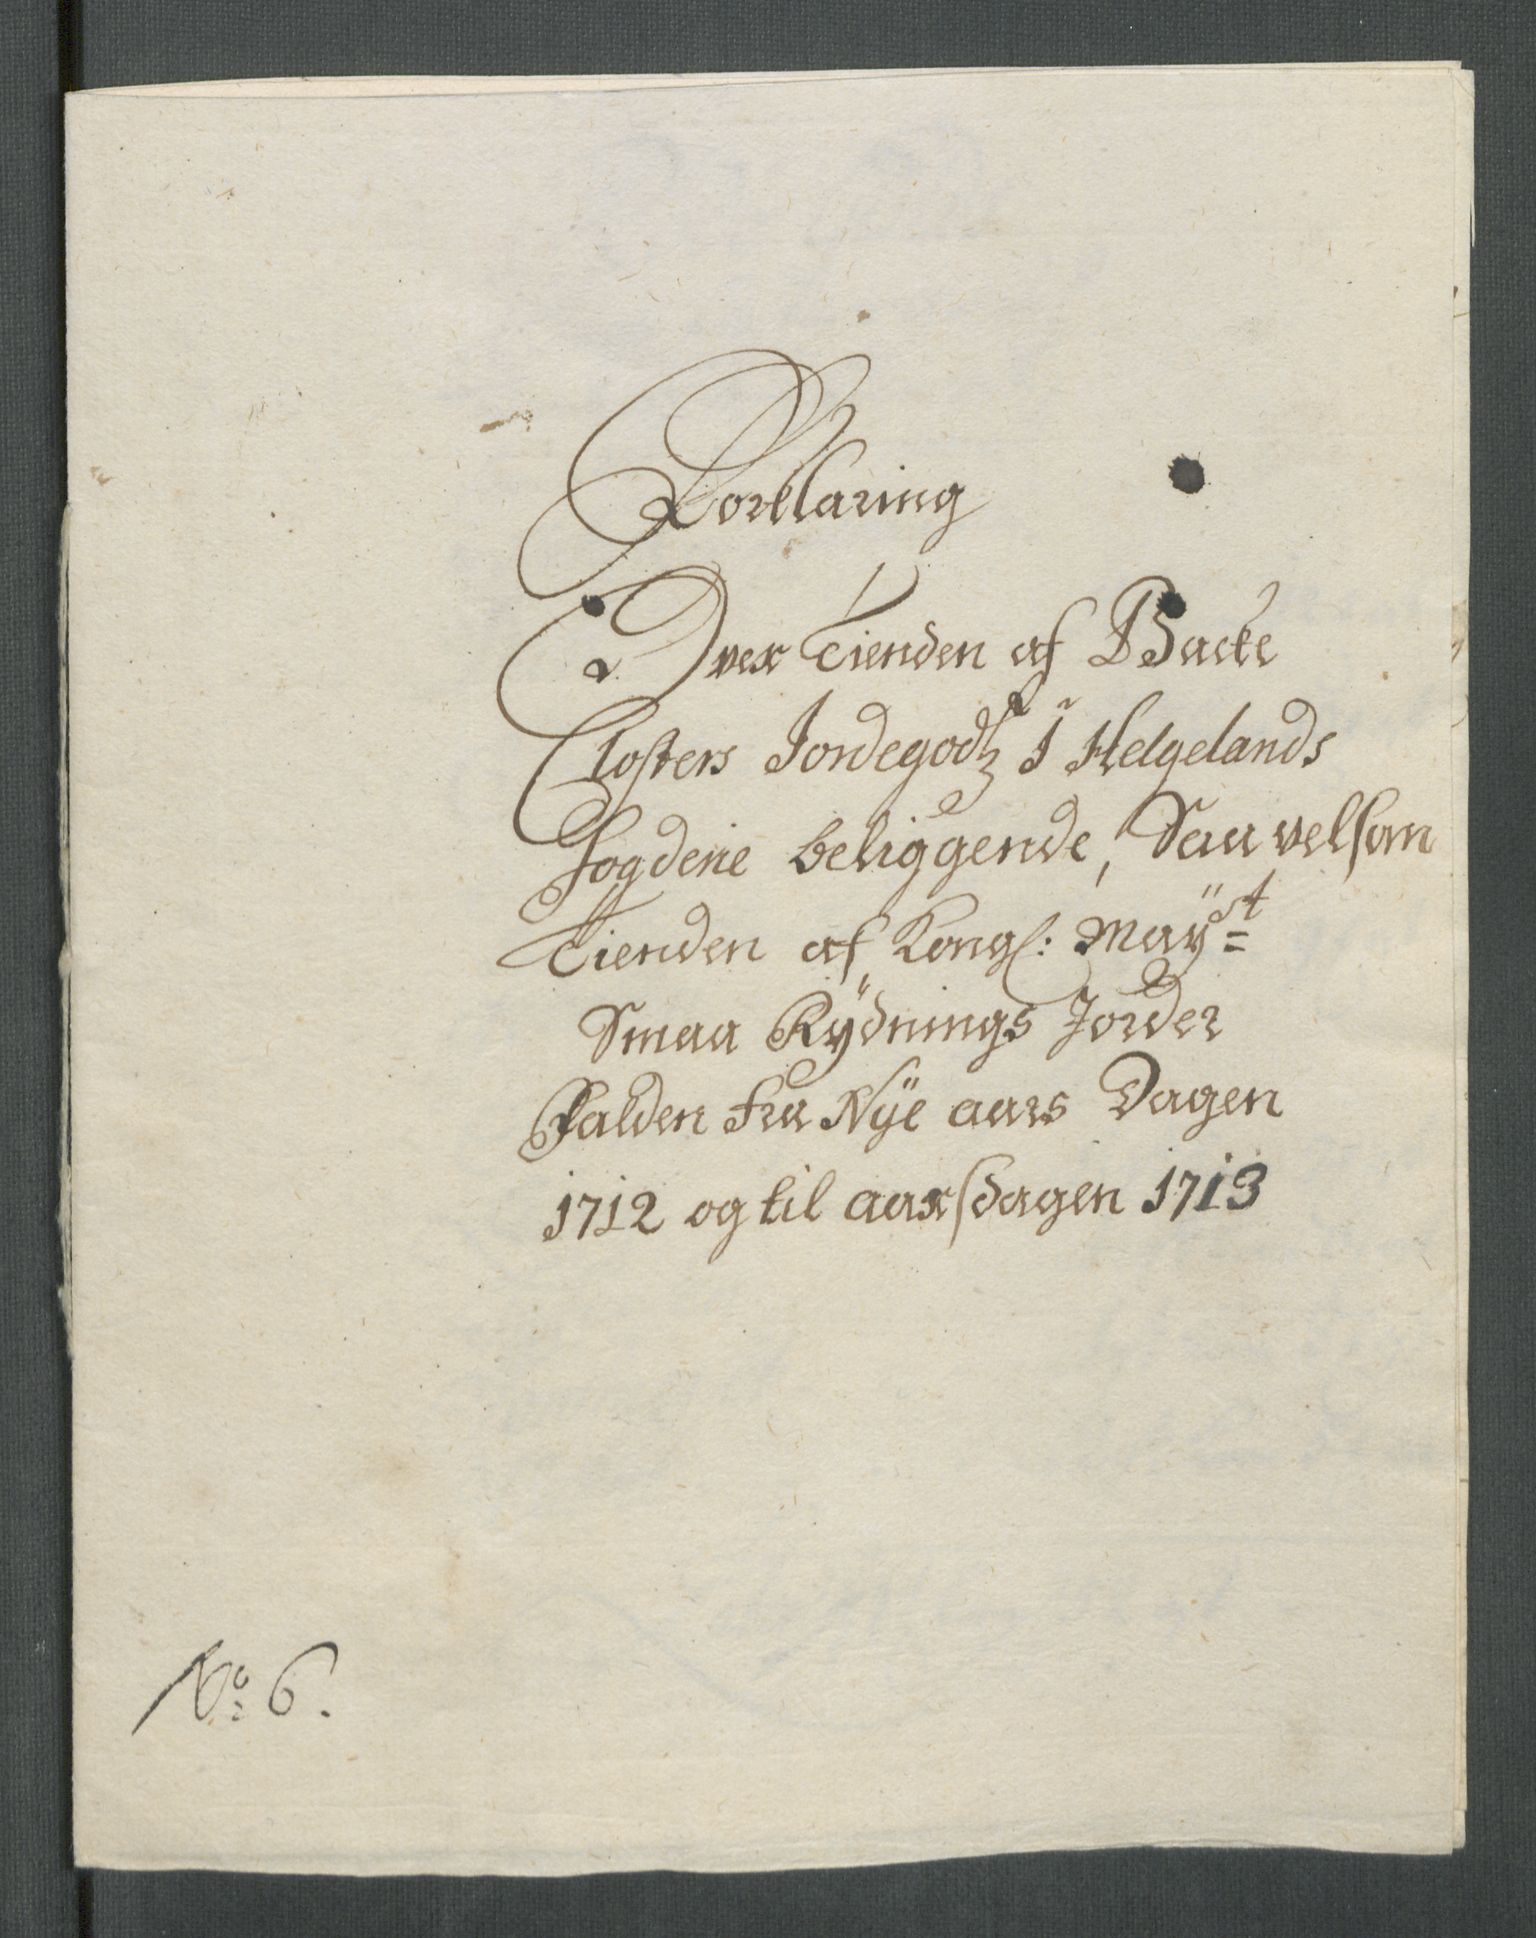 Forklaring
Over Tienden af Backe
Closters Jordegodtz I Helgelands
Fogderie beliggende, Saauelsom
Tienden af Kongl: Mayst
Smaa Rydnings Jorder
Falden fra Nye aars Dagen
1712 og til aarsdagen 1713
No: 6.